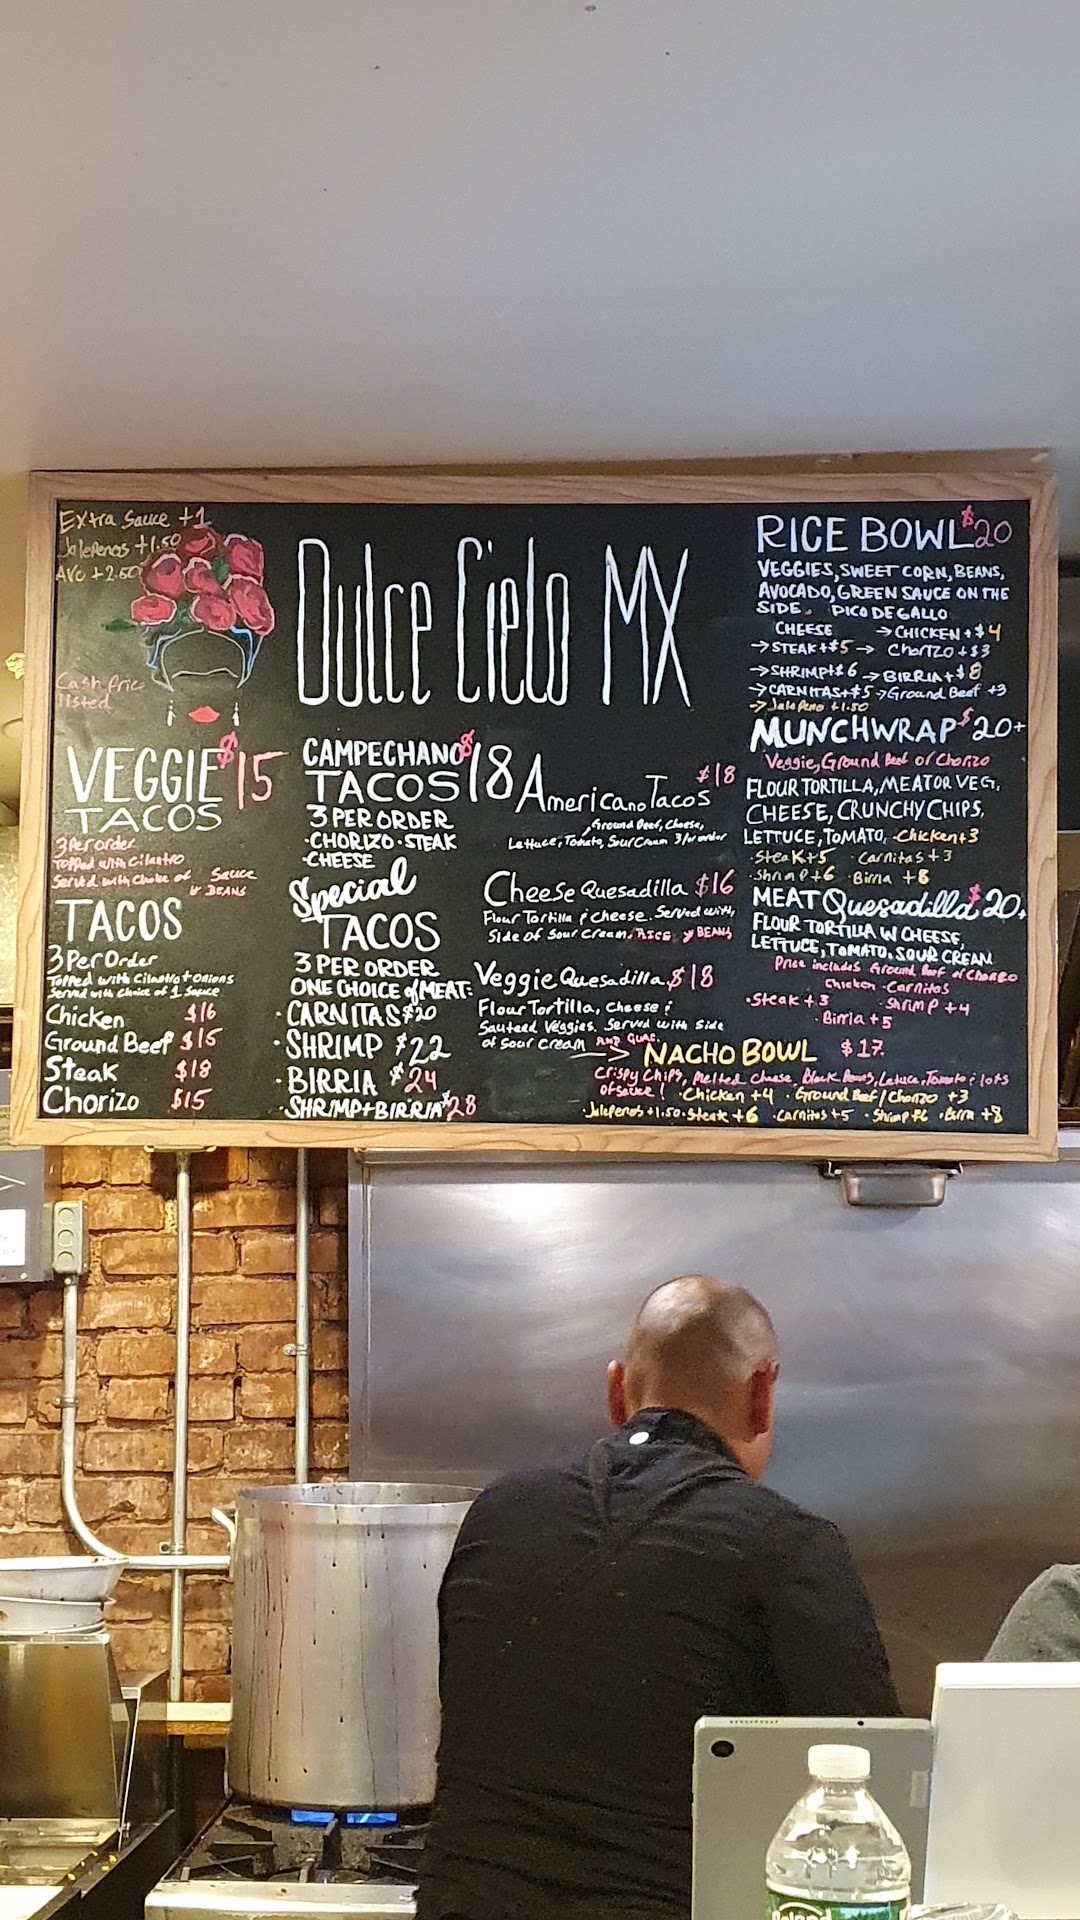 Extra Sauce +1
Jalepenos +1.50
Avo +2.50
Cash Price
listed
Dulce Cielo MX
VEGGIE $15
TACOS
3 Per order
Topped with Cilantro
Served with Choice of Sauce
BEANS
TACOS
3 Per Order
Topped with Cilantro + onions
Served with Choice of 1 Sauce
Chicken $16
Ground Beef $15
Steak $18
Chorizo $15
CAMPECHANO $18
TACOS
3 PER ORDER
·CHORIZO ·STEAK
·CHEESE
Special
TACOS
3 PER ORDER
ONE CHOICE of MEAT:
· CARNITAS $20
· SHRIMP $22
· BIRRIA $24
· SHRIMP+BIRRIA $28
Americano Tacos $18
Ground Beef, Cheese,
Lettuce, Tomato, Sour Cream 3/order
Cheese Quesadilla $16
Flour Tortilla & cheese. Served with,
Side of Sour Cream, RICE y BEANS
Veggie Quesadilla $18
Flour Tortilla, Cheese &
Sauteed Veggies. Served with Side
of Sour Cream AND GUAC.
RICE BOWL $20
VEGGIES, SWEET CORN, BEANS,
AVOCADO, GREEN SAUCE ON THE
SIDE. PICO DE GALLO
CHEESE → CHICKEN +$4
→ STEAK +$5 → Chorizo +$3
→ SHRIMP +$6 → BIRRIA +$8
→ CARNITAS +$5 → Ground Beef +3
→ Jalapeno +1.50
MUNCHWRAP $20+
Veggie, Ground Beef or Chorizo
FLOUR TORTILLA, MEAT OR VEG,
CHEESE, CRUNCHY CHIPS,
LETTUCE, TOMATO, ·Chicken+3
·Steak+5 ·Carnitas +3
·Shrimp +6 ·Birria +8
MEAT Quesadilla $20+
FLOUR TORTILLA W CHEESE,
LETTUCE, TOMATO, SOUR CREAM
Price includes Ground Beef or Chorizo
Chicken · Carnitas
·Steak +3 Shrimp +4
·Birria +5
→ NACHO BOWL $17.
Crispy Chips, Melted Cheese, Black Beans, Letuce, Tomato & lots
of sauce! ·Chicken +4 · Ground Beef/Chorizo +3
·Jalepenos +1.50 ·Steak +6 ·Carnitas +5 ·Shrimp +6 ·Birria +8